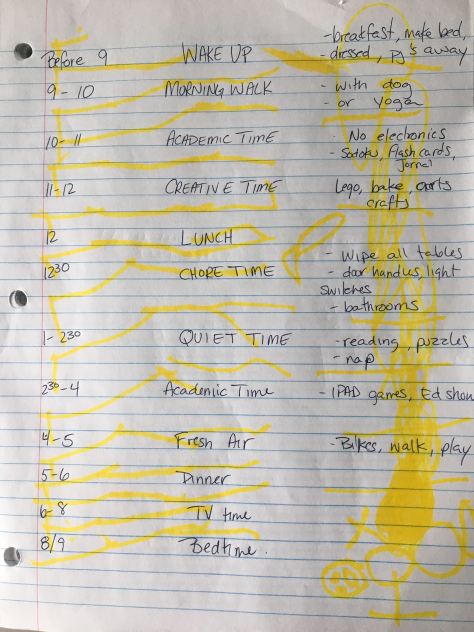 -breakfast, make bed,
Before 9 WAKE UP - dressed, pj's away
9-10 MORNING WALK - with dog
- or yoga
10-11 ACADEMIC TIME - No electronics
- Sodoku, flash cards,
jornal
11-12 CREATIVE TIME Lego, bake, arts
crafts
12 LUNCH
- Wipe all tables
12³⁰ CHORE TIME - door handles, light
switches
- bathrooms
1-2³⁰ QUIET TIME -reading, puzzles
- nap
2³⁰-4 Academic Time - IPAD games, Ed show
4-5 Fresh Air -Bikes, walk, play
5-6 Dinner
6-8 TV time
8/9 Bedtime.